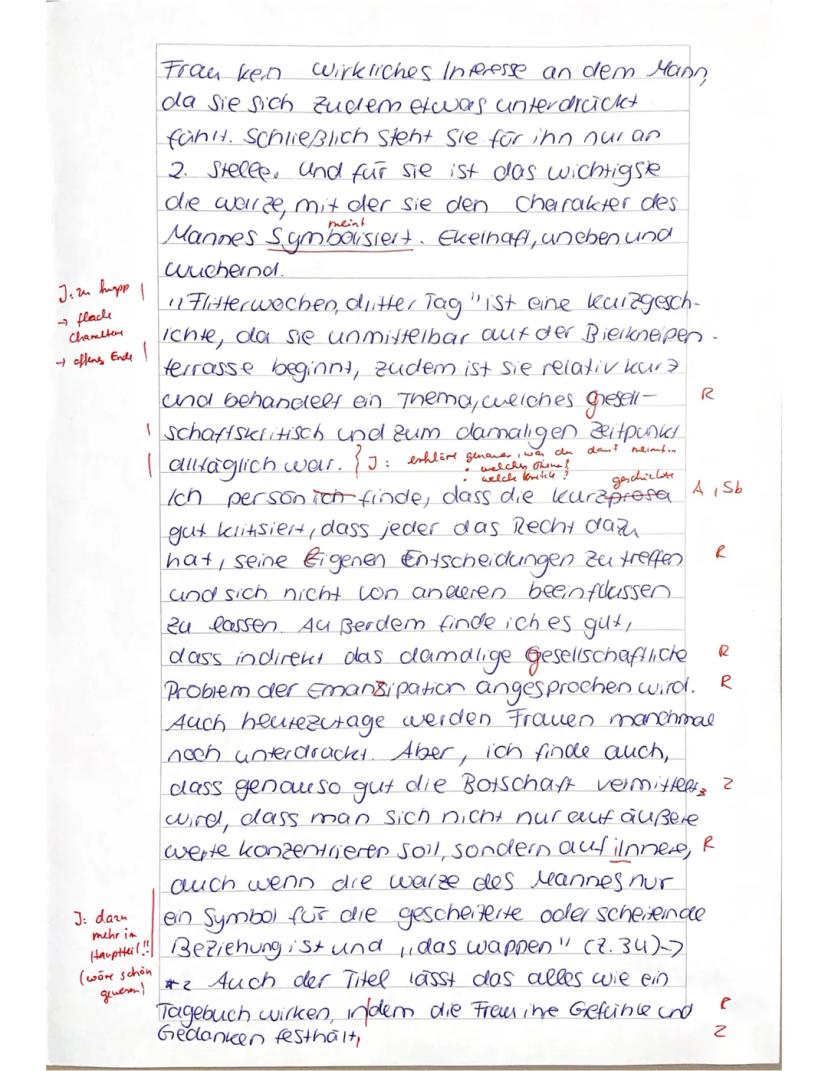 Frau kein wirkliches Interesse an dem Mann,
da sie sich zudem etwas unterdrückt
fühlt. Schließlich steht sie für ihn nur an
2. Stelle. Und für sie ist das wichtigste
die Warze, mit der sie den Charakter des
meint
Mannes Symbolisiert. Ekelhaft, uneben und
wuchernd.
J: zu knapp
→ flache
Charaktere
→ offenes Ende
"Flitterwochen, dritter Tag" ist eine Kurzgesch-
ichte, da sie unmittelbar auf der Bierkneipen-
terrasse beginnt, zudem ist sie relativ kurz
und behandelt ein Thema, welches gesell- R
schaftskritisch und zum damaligen Zeitpunkt
alltäglich war. J: erkläre genauer, was du damit meinst...
• welches Thema?
• welche Kritik?
geschichte
Ich persönlich finde, dass die Kurzprosa A, Sb
gut kritisiert, dass jeder das Recht dazu
hat, seine Eigenen Entscheidungen zu treffen R
und sich nicht von anderen beeinflussen
zu lassen. Außerdem finde ich es gut,
dass indirekt das damalige gesellschaftliche R
Problem der Emanzipation angesprochen wird. R
Auch heutezutage werden Frauen manchmal
noch unterdrückt. Aber, ich finde auch,
dass genauso gut die Botschaft vermittelt, Z
wird, dass man sich nicht nur auf äußere
werte konzentrieren soll, sondern auf innere, R
auch wenn die Warze des Mannes nur
J: dazu
mehr im
Hauptteil!!
(wäre schön
gewesen)
ein Symbol für die gescheiterte oder scheiternde
Beziehung ist und „das Wappen" (Z. 34)->
*2 Auch der Titel lässt das alles wie ein
Tagebuch wirken, indem die Frau ihre Gefühle und R
Gedanken festhält, Z